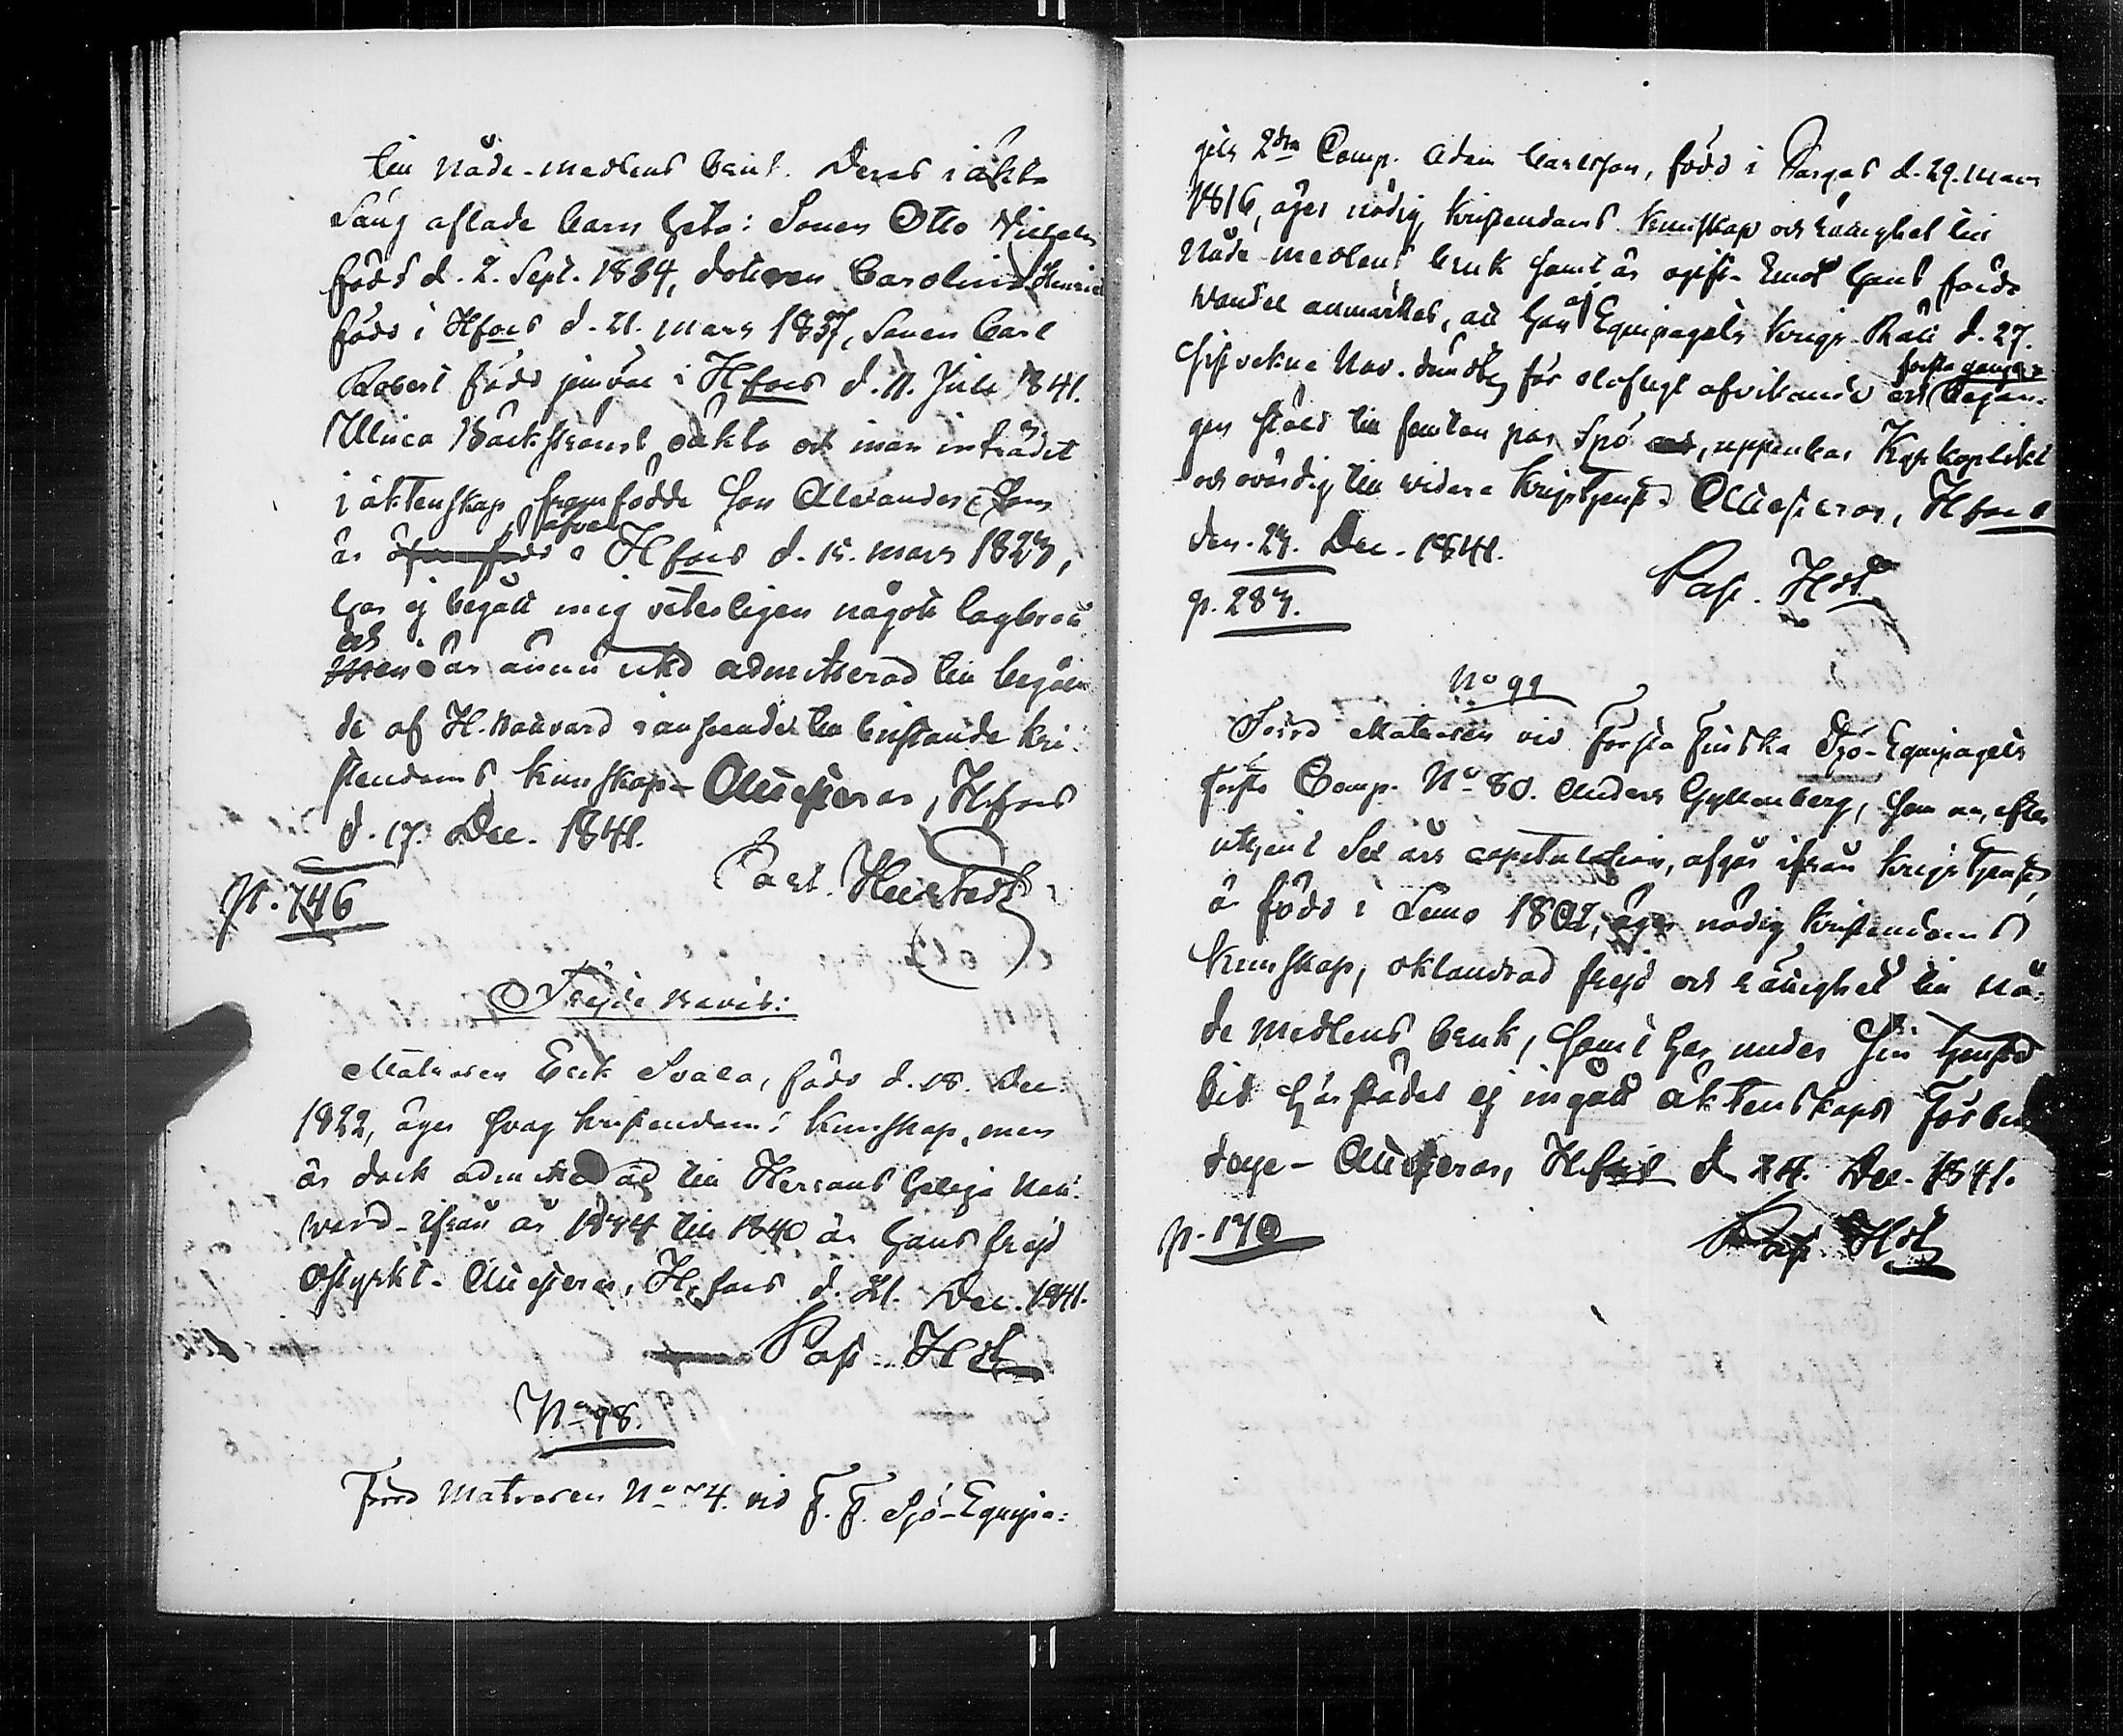 till Nåde-medlens bruk. Deras i äkta
Säng aflade barn heta: Sonen Otto Vilhelm
född d. 2. Sept. 1834, dottren Carolina Henrica
född i Hfors d. 21. mars 1837, Sonen Carl
Robert född jemväl i Hfors d. 11. Juli 1841.
Ulrica Bäckströms oäkta och innan inträdet
i äktenskap framfödde Son Alexander, som
är äfven född i Hfors d. 15. mars 1823,
har ej begått mig veterligen något lagbrott
och
men är ännu icke admitterad till begåen-
de af H. Nattvard i anseende till bristande kri-
stendoms kunskap - Attesteras, Hfors
d. 17. Dec. 1841.
Past. Hertstedt
p. 746
Frejde bevis:
Matrosen Erik Svala, född d. 18. Dec.
1822, äger svag kristendoms kunskap, men
är dock admitterad till Herrans heliga Natt-
vard - ifrån år 1834 till 1840 är hans frejd
ostyrkt. Attesteras, H:fors d. 21. Dec. 1841.
Past. Hdt
No 98.
Förre Matrosen No 74. vid F. F. Sjö-Equipa-
gets 2dra Comp. Adam Carlsson, född i Pargas d. 29. Mars
1816, äger nödig kristendoms kunskap och rättighet till
Nåde-medlens bruk samt är ogift. Emot hans förda
vandel anmärkes, att han af Equipagets Krigs-Rätt d. 27.
sistvekne Nov. dömdts för olofligt afvikande och första gången begån-
gen stöld till femton par Spö, uppenbar Kyrkoplikt
och ovärdig till vidare krigstjenst. Attesteras, Hfors
den 23. Dec. 1841.
Past. Hdt
p. 283.
No 99
Förre Matrosen vid Första Finska Sjö-Equipagets
första Comp. No 80. Anders Gyllenberg, som nu, efter
uttjent Sex års capitulation, afgår ifrån krigstjenst,
är född i Lemo 1802, äger nödig kristendoms
kunskap, oklandrad frejd och rättighet till Nå-
de medlens bruk, samt har under sin tjenste
tid härstädes ej ingått äktenskaps förbin
delse - Attesteras, Hfors d 24. Dec. 1841.
p. 170
Past. Hdt